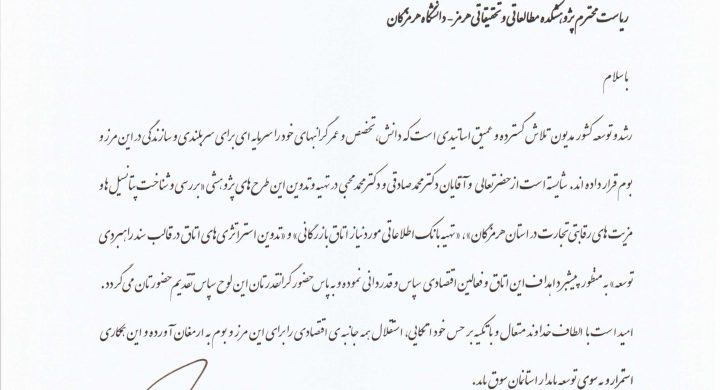 ریاست محترم پژوهشکده مطالعاتی و تحقیقاتی هرمز - دانشگاه هرمزگان
باسلام
رشد و توسعه کشور مدیون تلاش گسترده و عمیق اساتیدی است که دانش، تخصص و عمر گرانبهای خود را سرمایه ای برای سربلندی و سازندگی در این مرز و
بوم قرار داده اند. شایسته است از حضرتعالی و آقایان دکتر محمد صادقی و دکتر محمد محبی در تهیه و تدوین این طرح های پژوهشی «بررسی و شناخت پتانسیل ها و
مزیت های رقابتی تجارت در استان هرمزگان»، «تهیه بانک اطلاعاتی مورد نیاز اتاق بازرگانی» و «تدوین استراتژی های اتاق در قالب سند راهبردی
توسعه» به منظور پیشبرد اهداف این اتاق و فعالین اقتصادی سپاس و قدردانی نموده و به پاس حضور گرانقدرتان این لوح سپاس تقدیم حضورتان می گردد.
امید است با الطاف خداوند متعال و با تکیه بر حس خود اتکایی، استقلال همه جانبه ی اقتصادی را برای این مرز و بوم به ارمغان آورده و این همکاری
استمرار و به سوی توسعه پایدار استانمان سوق یابد.